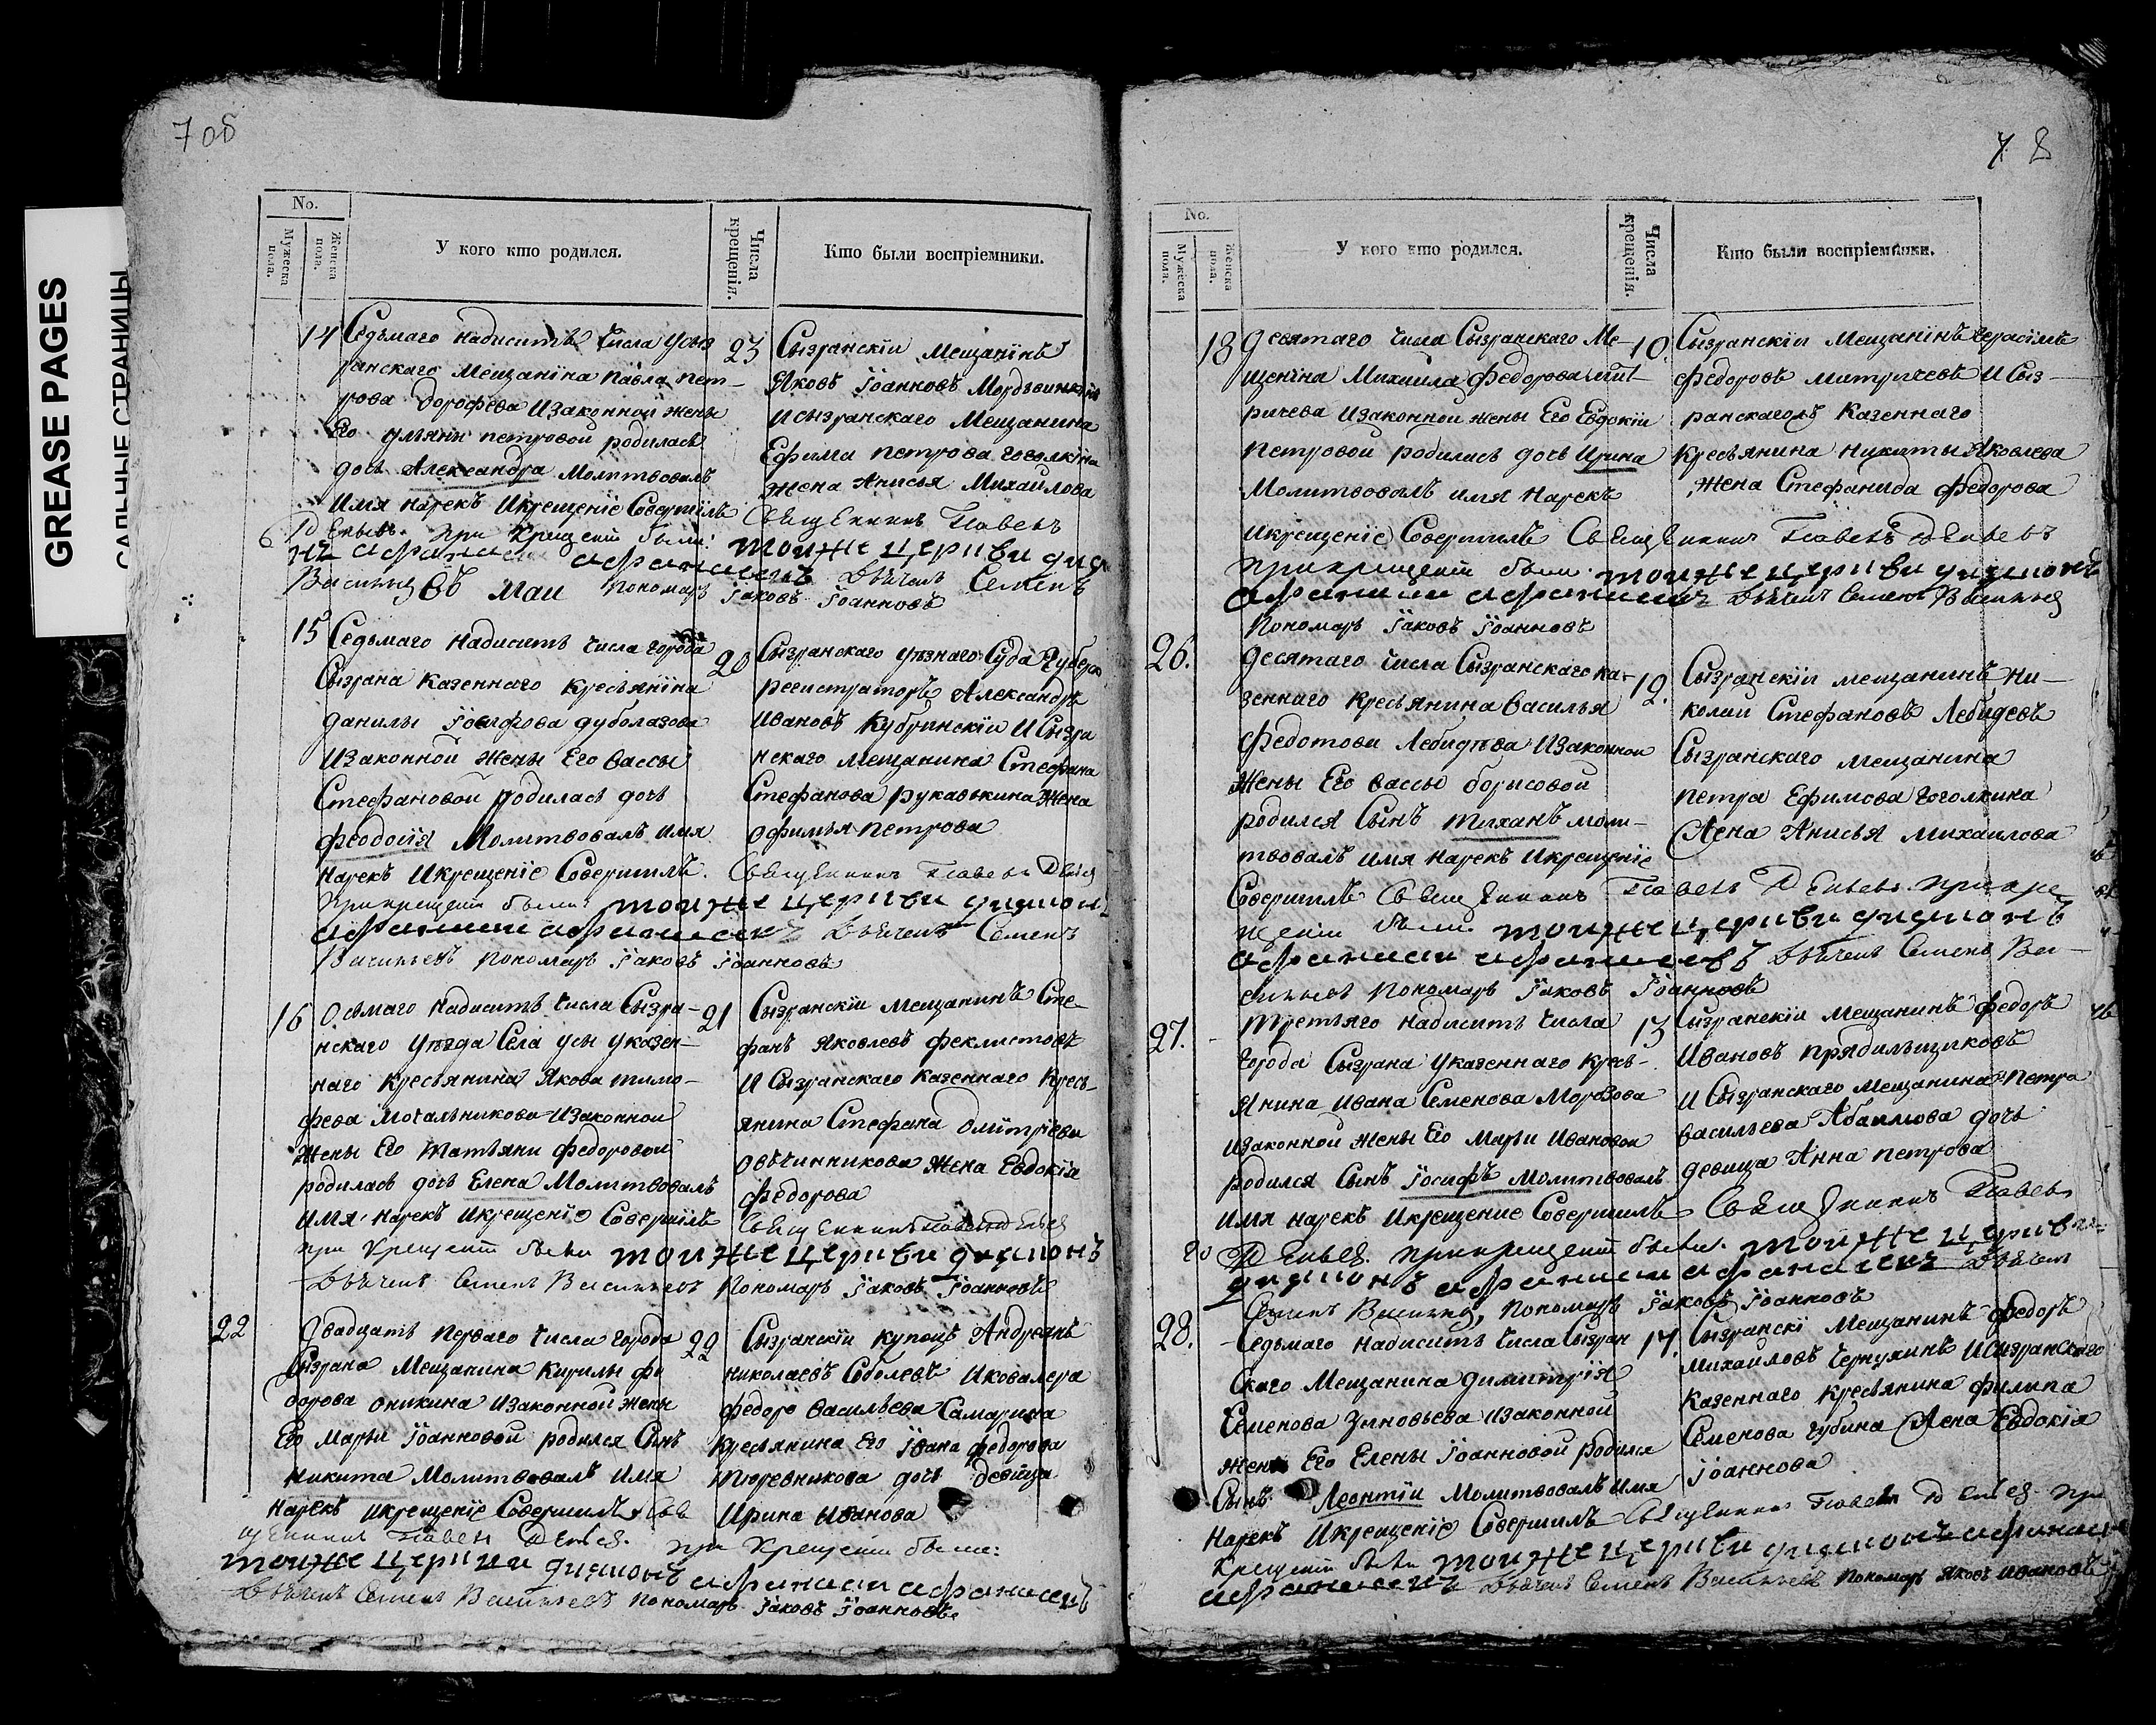 GREASE PAGES
САЛЬНЫЕ СТРАНИЦЫ
No.
Мужеска пола.
Женска пола.
У кого кто родился.
Числа крещенія.
Кто были воспріемники.
14 Седьмаго надцать числа усыз
ранскаго Мещанина Павла пет-
рова дорофева Изаконной жены
Его улъяны петровой родилась
дочь Александра Молитвовалъ
Имя Нарекъ Икрещеніе Совершилъ Священникъ Павелъ
при Крещеніи были: тоиже церкви
Афанасіи Афанасіевъ Дьячекъ Семенъ
въ маи Пономарь Іаковъ Іоанновъ
23 Сызранскіи мещанінъ
Яковъ Іоанновъ
Исызранскаго Мещанина
Ефима петрова гоголкина
жена Анисья Михайлова
15 Седьмаго Надцать числа города
Сызрана казеннаго кресьянина
данилы Іосифова дуболазова
Изаконной жены Его вассы
Стефановой родилась дочь
феодосія Молитвовалъ имя
Нарекъ Икрещеніе Совершилъ. Священникъ Павелъ
Прикрещеніи были: тоиже церкви диаконъ
Афанасіи Афанасіевъ Дьячекъ Семенъ
Васильевъ Пономарь Іаковъ Іоанновъ
20 Сызранскаго уѣзнаго Суда Губерн
регистраторъ Александръ
Ивановъ Кубринскіи И Сызра
нскаго мещанина Стефана
Стефанова рукавкина Жена
офимья петрова
16 Осьмаго Надцать числа Сызра-
нскаго уѣзда Села усы указен-
наго кресьянина Якова тимо-
фева Мочальникова Изаконной
Жены Его татьяны федоровой
родилась дочь Елена Молитвовалъ
имя нарекъ Икрещеніе Совершилъ
при Крещеніи были тоиже церкви диаконъ
Дьячекъ Семенъ Васильевъ Пономарь Іаковъ Іоанновъ
21 Сызранскіи мещанинъ Сте-
фанъ Яковлевъ феклистовъ
И Сызранскаго казеннаго кресь-
янина Стефана дмитріева
овчинникова жена Евдокія
федорова
22 двадцать перваго числа города
Сызрана Мещанина Кирилы фе
дорова оникина Изаконной жены
Его Марьи Іоанновой родился Сынъ
никита Молитвовалъ имя
Нарекъ икрещеніе Совершилъ Свя
щенникъ Павелъ при Крещеніи были:
тоиже церкви диаконъ Афанасіи Афанасіевъ
Дьячекъ Семенъ Васильевъ Пономарь Іаковъ Іоанновъ
22 Сызранскіи купецъ Андреянъ
николаевъ Соболевъ Иковалера
федора васильева Самарина
кресьянина Его Івана федорова
дочь девица
Ирина иванова
No.
Мужеска пола.
Женска пола.
У кого кто родился.
Числа крещенія.
Кто были воспріемники.
18 десятаго числа Сызранскаго Ме-
щенина Михаила федорова мит-
ричева изаконной жены Его Евдокіи
петровой родилась дочь Ирина
Молитвовалъ имя нарекъ
икрещеніе Совершилъ Священникъ Павелъ
прикрещеніи были тоиже церкви диаконъ
Афанасіи Афанасіевъ Дьячекъ Семенъ
Пономарь Іаковъ Іоанновъ
10. Сызранскіи Мещанінъ герасімъ
федоровъ митричевъ И Сыз-
казеннаго
кресьянина Никиты Яковлева
Жена Стефанида федорова
26. десятаго числа Сызранскаго ка-
зеннаго кресьянина василья
федотова Лебидева Изаконной
жены Его вассы борисовой
родился Сынъ тиханъ моли-
твовалъ имя нарекъ Икрещеніе
Совершилъ Священникъ Павелъ прикре
щеніи были тоиже церкви диаконъ
Афанасіи Афанасіевъ Дьячекъ Семенъ Ва-
сильевъ Пономарь Іаковъ Іоанновъ
12. Сызранскіи мещанинъ Ни-
колаи Стефановъ Лебидевъ
Сызранскаго мещанина
петра Ефимова гоголкина
Жена Анисья михаилова
27. третьяго надцать числа
города Сызрана указеннаго кресь-
янина ивана Семенова Морозова
изаконной жены Его Марьи Ивановой
родился Сынъ Іосифъ Молитвовалъ
имя нарекъ Икрещение Совершилъ Священникъ Павелъ
прикрещеніи были. тоиже церкви
диаконъ Афанасіи Афанасіевъ Дьячекъ
Семенъ Пономарь Іаковъ Іоанновъ
13 Сызранскіи Мещанинъ федоръ
Ивановъ прядильщиковъ
и Сызранскаго Мещанина петра
васильева Абаимова дочь
девица Анна петрова
28. Седьмаго надцать числа Сызран
скаго Мещанина димитрія
Семенова Зиновьева изаконной
жены Его Елены Іоанновой родился
Сынъ Леонтіи Молитвовалъ имя
нарекъ Икрещеніе Совершилъ Священникъ Павелъ при
крещеніи были тоиже церкви диаконъ Афанасіи
Афанасіевъ Дьячекъ Семенъ Васильевъ Пономарь Яковъ ивановъ
17. Сызранскі Мещанинъ федоръ
михаиловъ Чернухинъ Исызранскаго
казеннаго кресьянина филипа
Семенова губина Жена Евдокія
Іоаннова